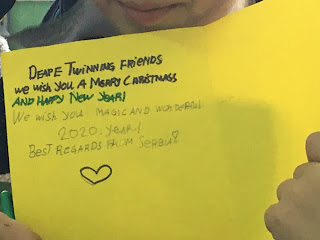 DEARE TWINNING FRIENDS
WE WISH YOU A MERRY CHRISTMASS
AND HAPPY NEW YEAR!
WE WISH YOU MAGIC AND WONDERFUL
2020. YEAR!
BEST REGARDS FROM SERBIA!